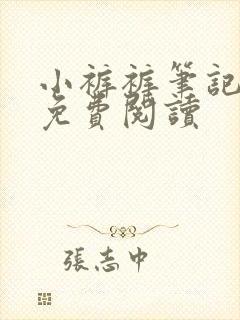 小裤裤筆記
免費閱讀
張志中